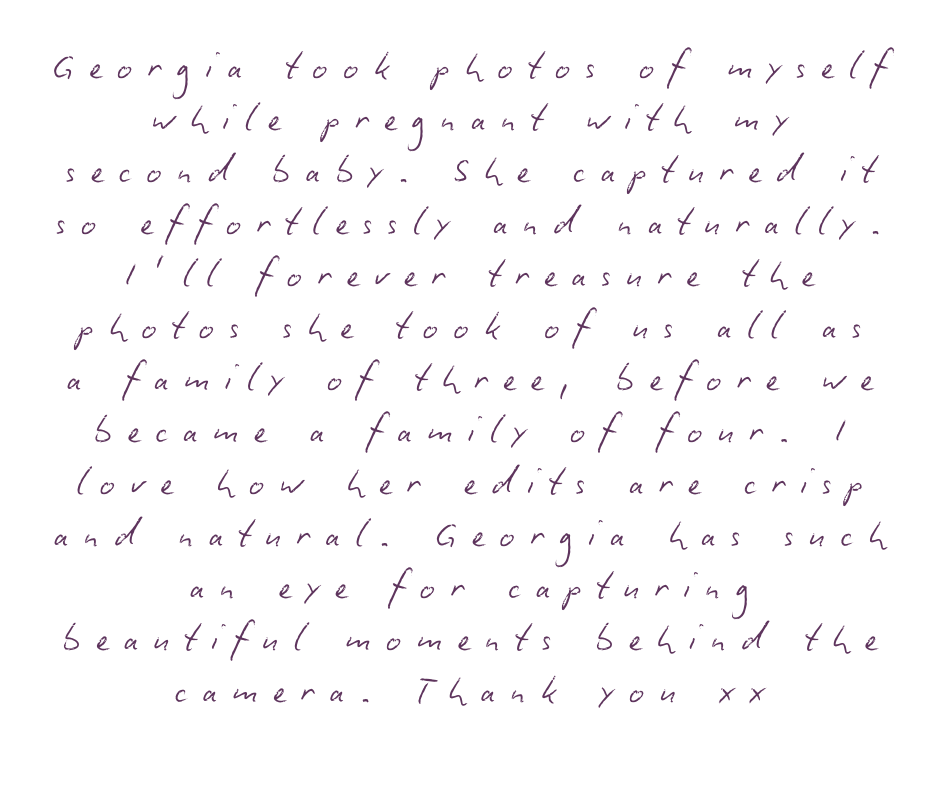 Georgia took photos of myself
while pregnant with my
second baby. She captured it
so effortlessly and naturally.
I'll forever treasure the
photos she took of us all as
a family of three, before we
became a family of four. I
love how her edits are crisp
and natural. Georgia has such
an eye for capturing
beautiful moments behind the
camera. Thank you xx